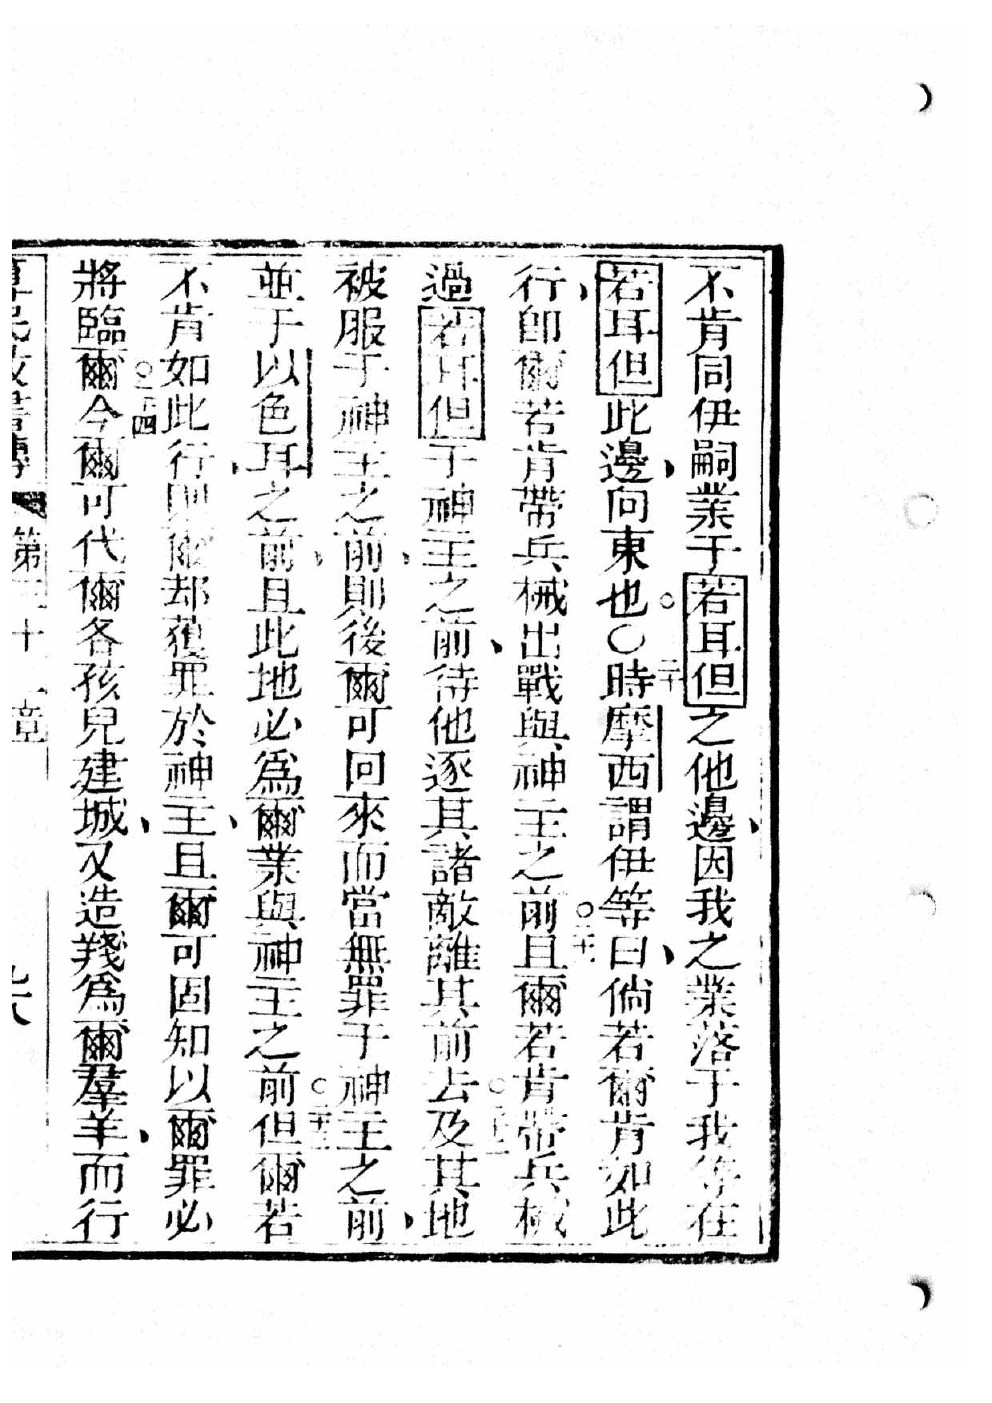 不肯同伊嗣業于若耳但之他邊、因我之業落于我等在
若耳但此邊、向東也。○二十時摩西謂伊等曰、倘若爾肯如此
行、卽爾若肯帶兵械出戰與神主之前。二十一且爾若肯帶兵械
過若耳但于神主之前、待他逐其諸敵離其前去。二十二及其地
被服于神主之前、則後爾可回來而當無罪于神主之前、
並于以色耳之前、且此地必爲爾業與神主之前。二十三但爾若
不肯如此行、則爾却獲罪於神主、且爾可固知以爾罪必
將臨爾。二十四今爾可代爾各孩兒建城、又造羧爲爾羣羊、而行
第三十二章